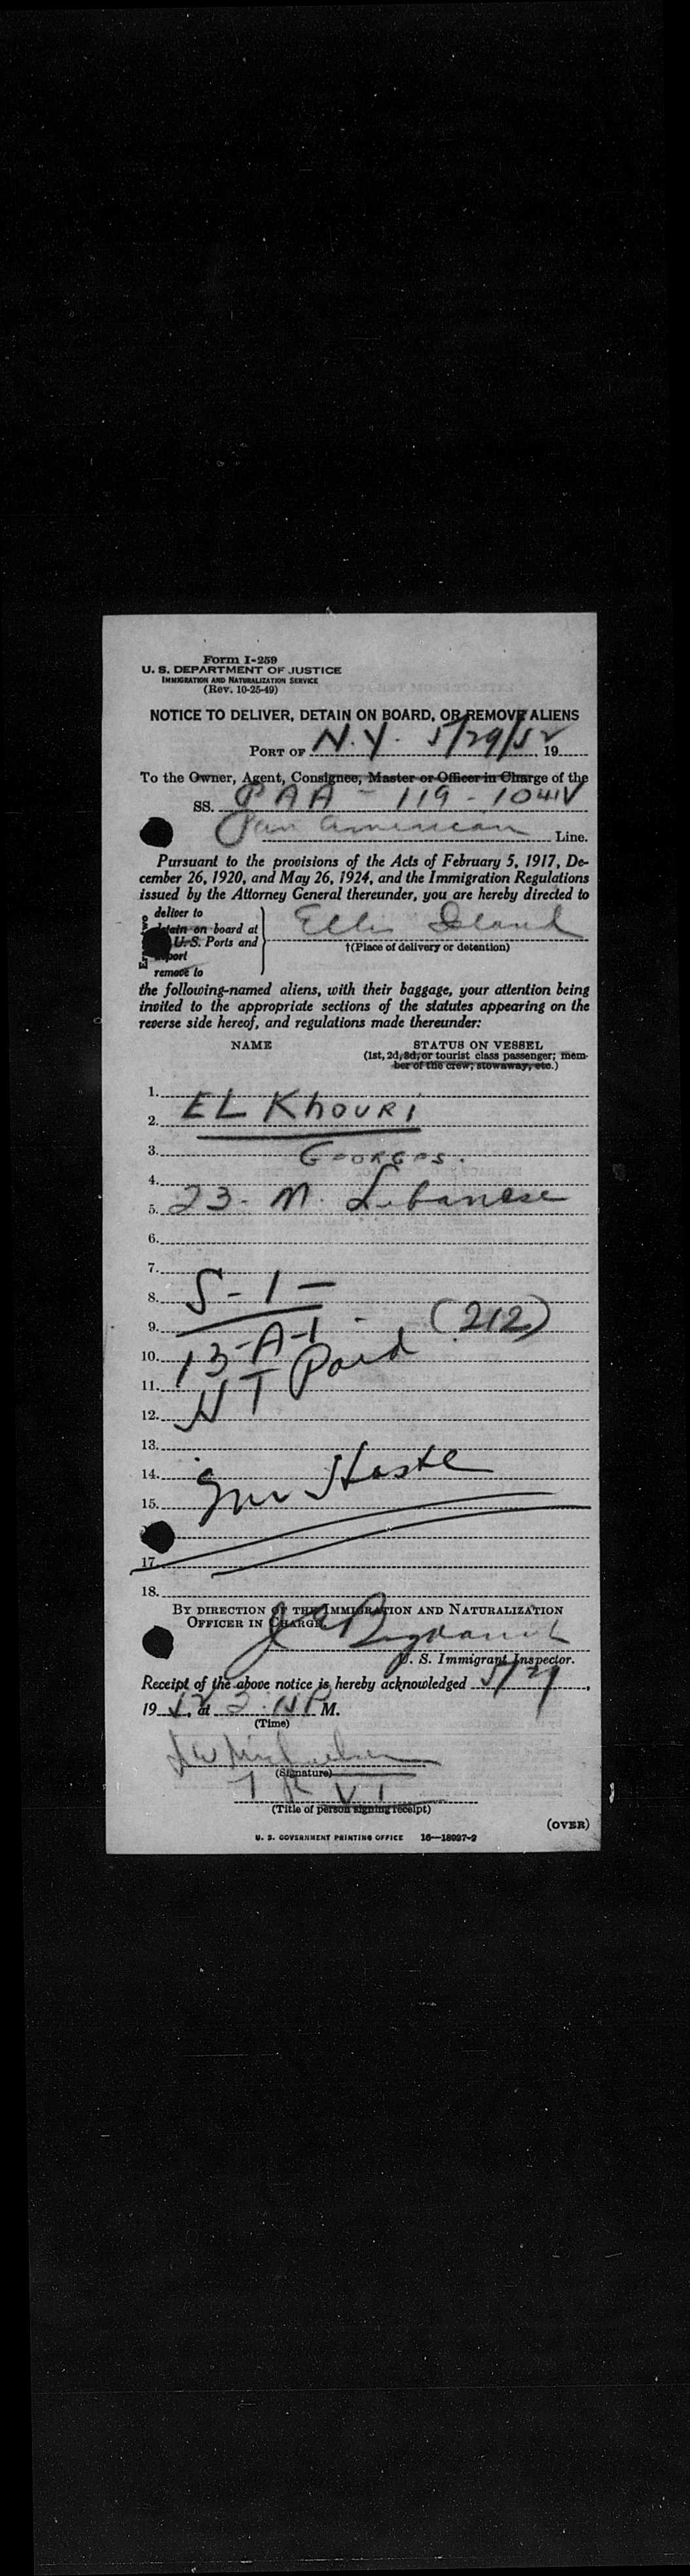 Form I-259
U. S. DEPARTMENT OF JUSTICE
IMMIGRATION AND NATURALIZATION SERVICE
(Rev. 10-25-49)
NOTICE TO DELIVER, DETAIN ON BOARD, OR REMOVE ALIENS
PORT OF N.Y. 5/29/52, 19
To the Owner, Agent, Consignee, Master or Officer in Charge of the
SS. PAA - 119 - 1041V
Pan American Line.
Pursuant to the provisions of the Acts of February 5, 1917, De-
cember 26, 1920, and May 26, 1924, and the Immigration Regulations
issued by the Attorney General thereunder, you are hereby directed to
deliver to
on board at
U. S. Ports and
remove to
Ellis Island
†(Place of delivery or detention)
the following-named aliens, with their baggage, your attention being
invited to the appropriate sections of the statutes appearing on the
reverse side hereof, and regulations made thereunder:
NAME STATUS ON VESSEL
(1st, 2d, 3d, or tourist class passenger; mem-
ber of the crew; stowaway, etc.)
1.
2. EL KhOURI
3. GEORGES.
4.
5. 23 - M. Lebanese
6.
7.
8. S-1-
9. (212)
10. 13-A-1 -
11. HT Paid
12.
13.
14.
15.
17.
18.
BY DIRECTION OF THE IMMIGRATION AND NATURALIZATION
OFFICER IN CHARGE
U. S. Immigrant Inspector.
Receipt of the above notice is hereby acknowledged 5/29,
1952, at 2:15 P M.
(Time)
(Signature)
(Title of person signing receipt)
(OVER)
U. S. GOVERNMENT PRINTING OFFICE 16—18927-2